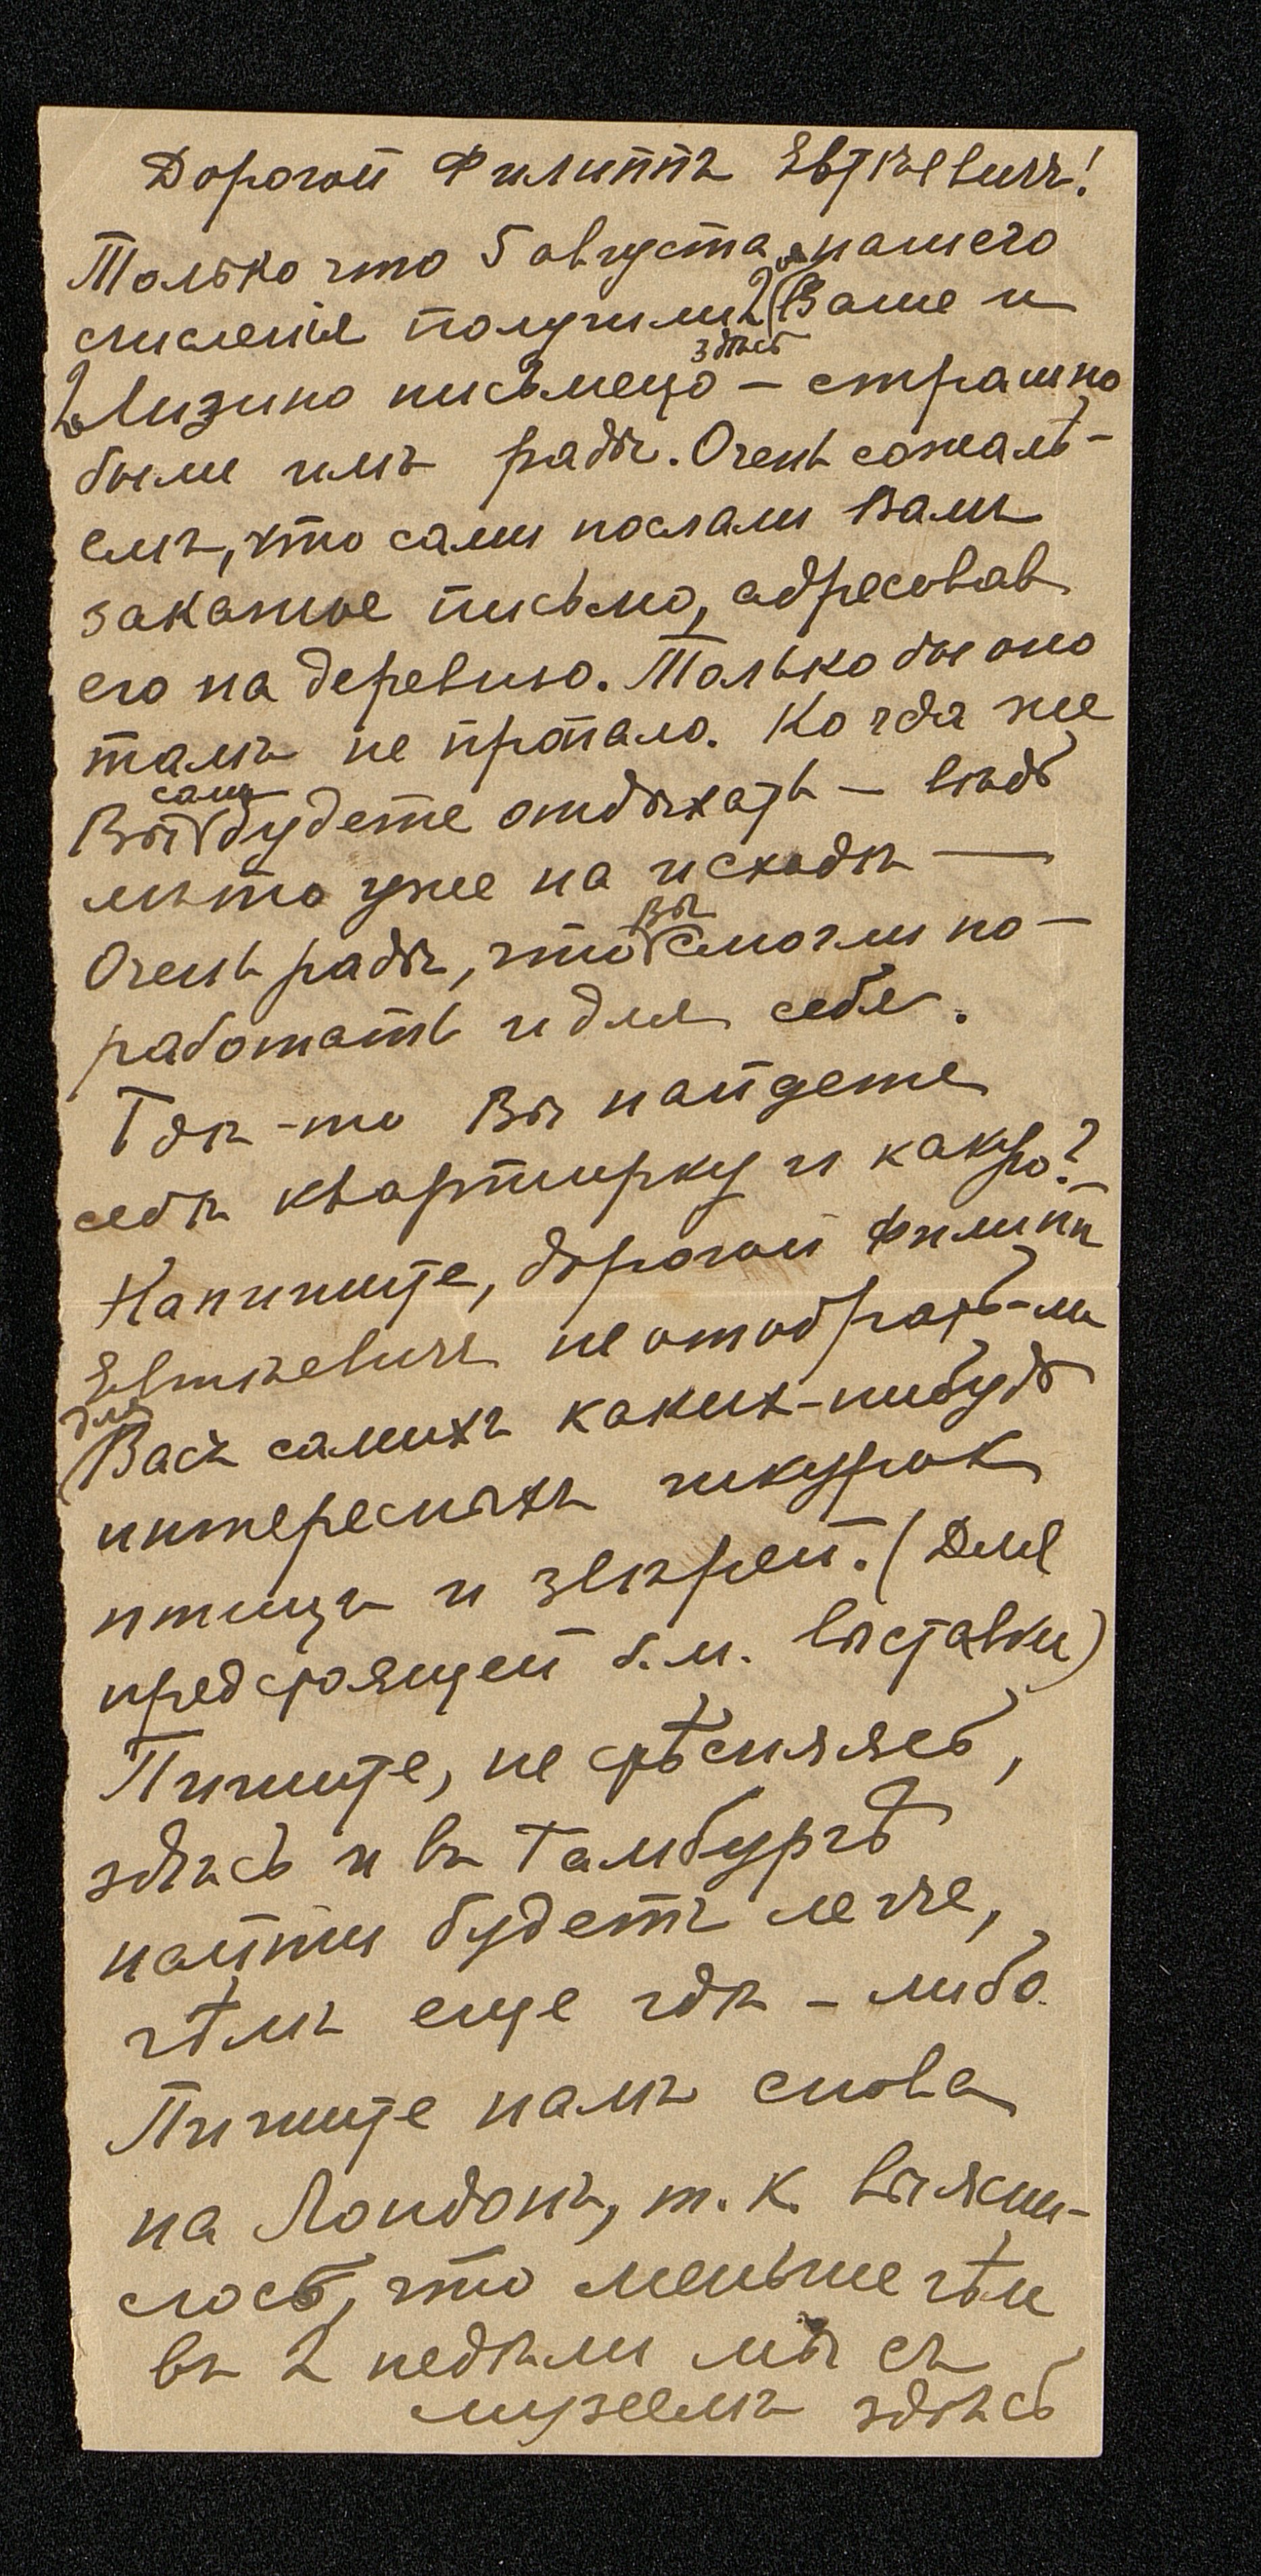 Дорогой Филиппъ Евтѣевичъ!
Только что 5 августа нашего
счисленія получили Ваше и
здѣсь
Лизино письмецо – страшно
были имъ рады. Очень сожалѣ-
емъ, что сами послали Вамъ
заказное письмо, адресовав
его на деревню. Только бы оно
тамъ не пропало. Когда же
сами
Вы будете отдыхать – вѣдь
лѣто уже на исходѣ —
Вы
Очень рады, что смогли по-
работать и для себя.
Гдѣ-то Вы найдете
себѣ квартирку и какую? –
Напишите, дорогой Филипп
Евтѣевичъ не отобрать-ли
для
Васъ самихъ каких-нибудь
интересныхъ шкурок
птицъ и звѣрей. (Для
предстоящей б. м. выставки)
Пишите, не стѣсняясь,
здѣсь и въ Гамбургѣ
найти будетъ легче,
чѣмъ еще гдѣ – либо.
Пишите намъ снова
на Лондонъ, т. к. выясни-
лось, что меньше чѣм
въ 2 недѣли мы съ
музеемъ здѣсь